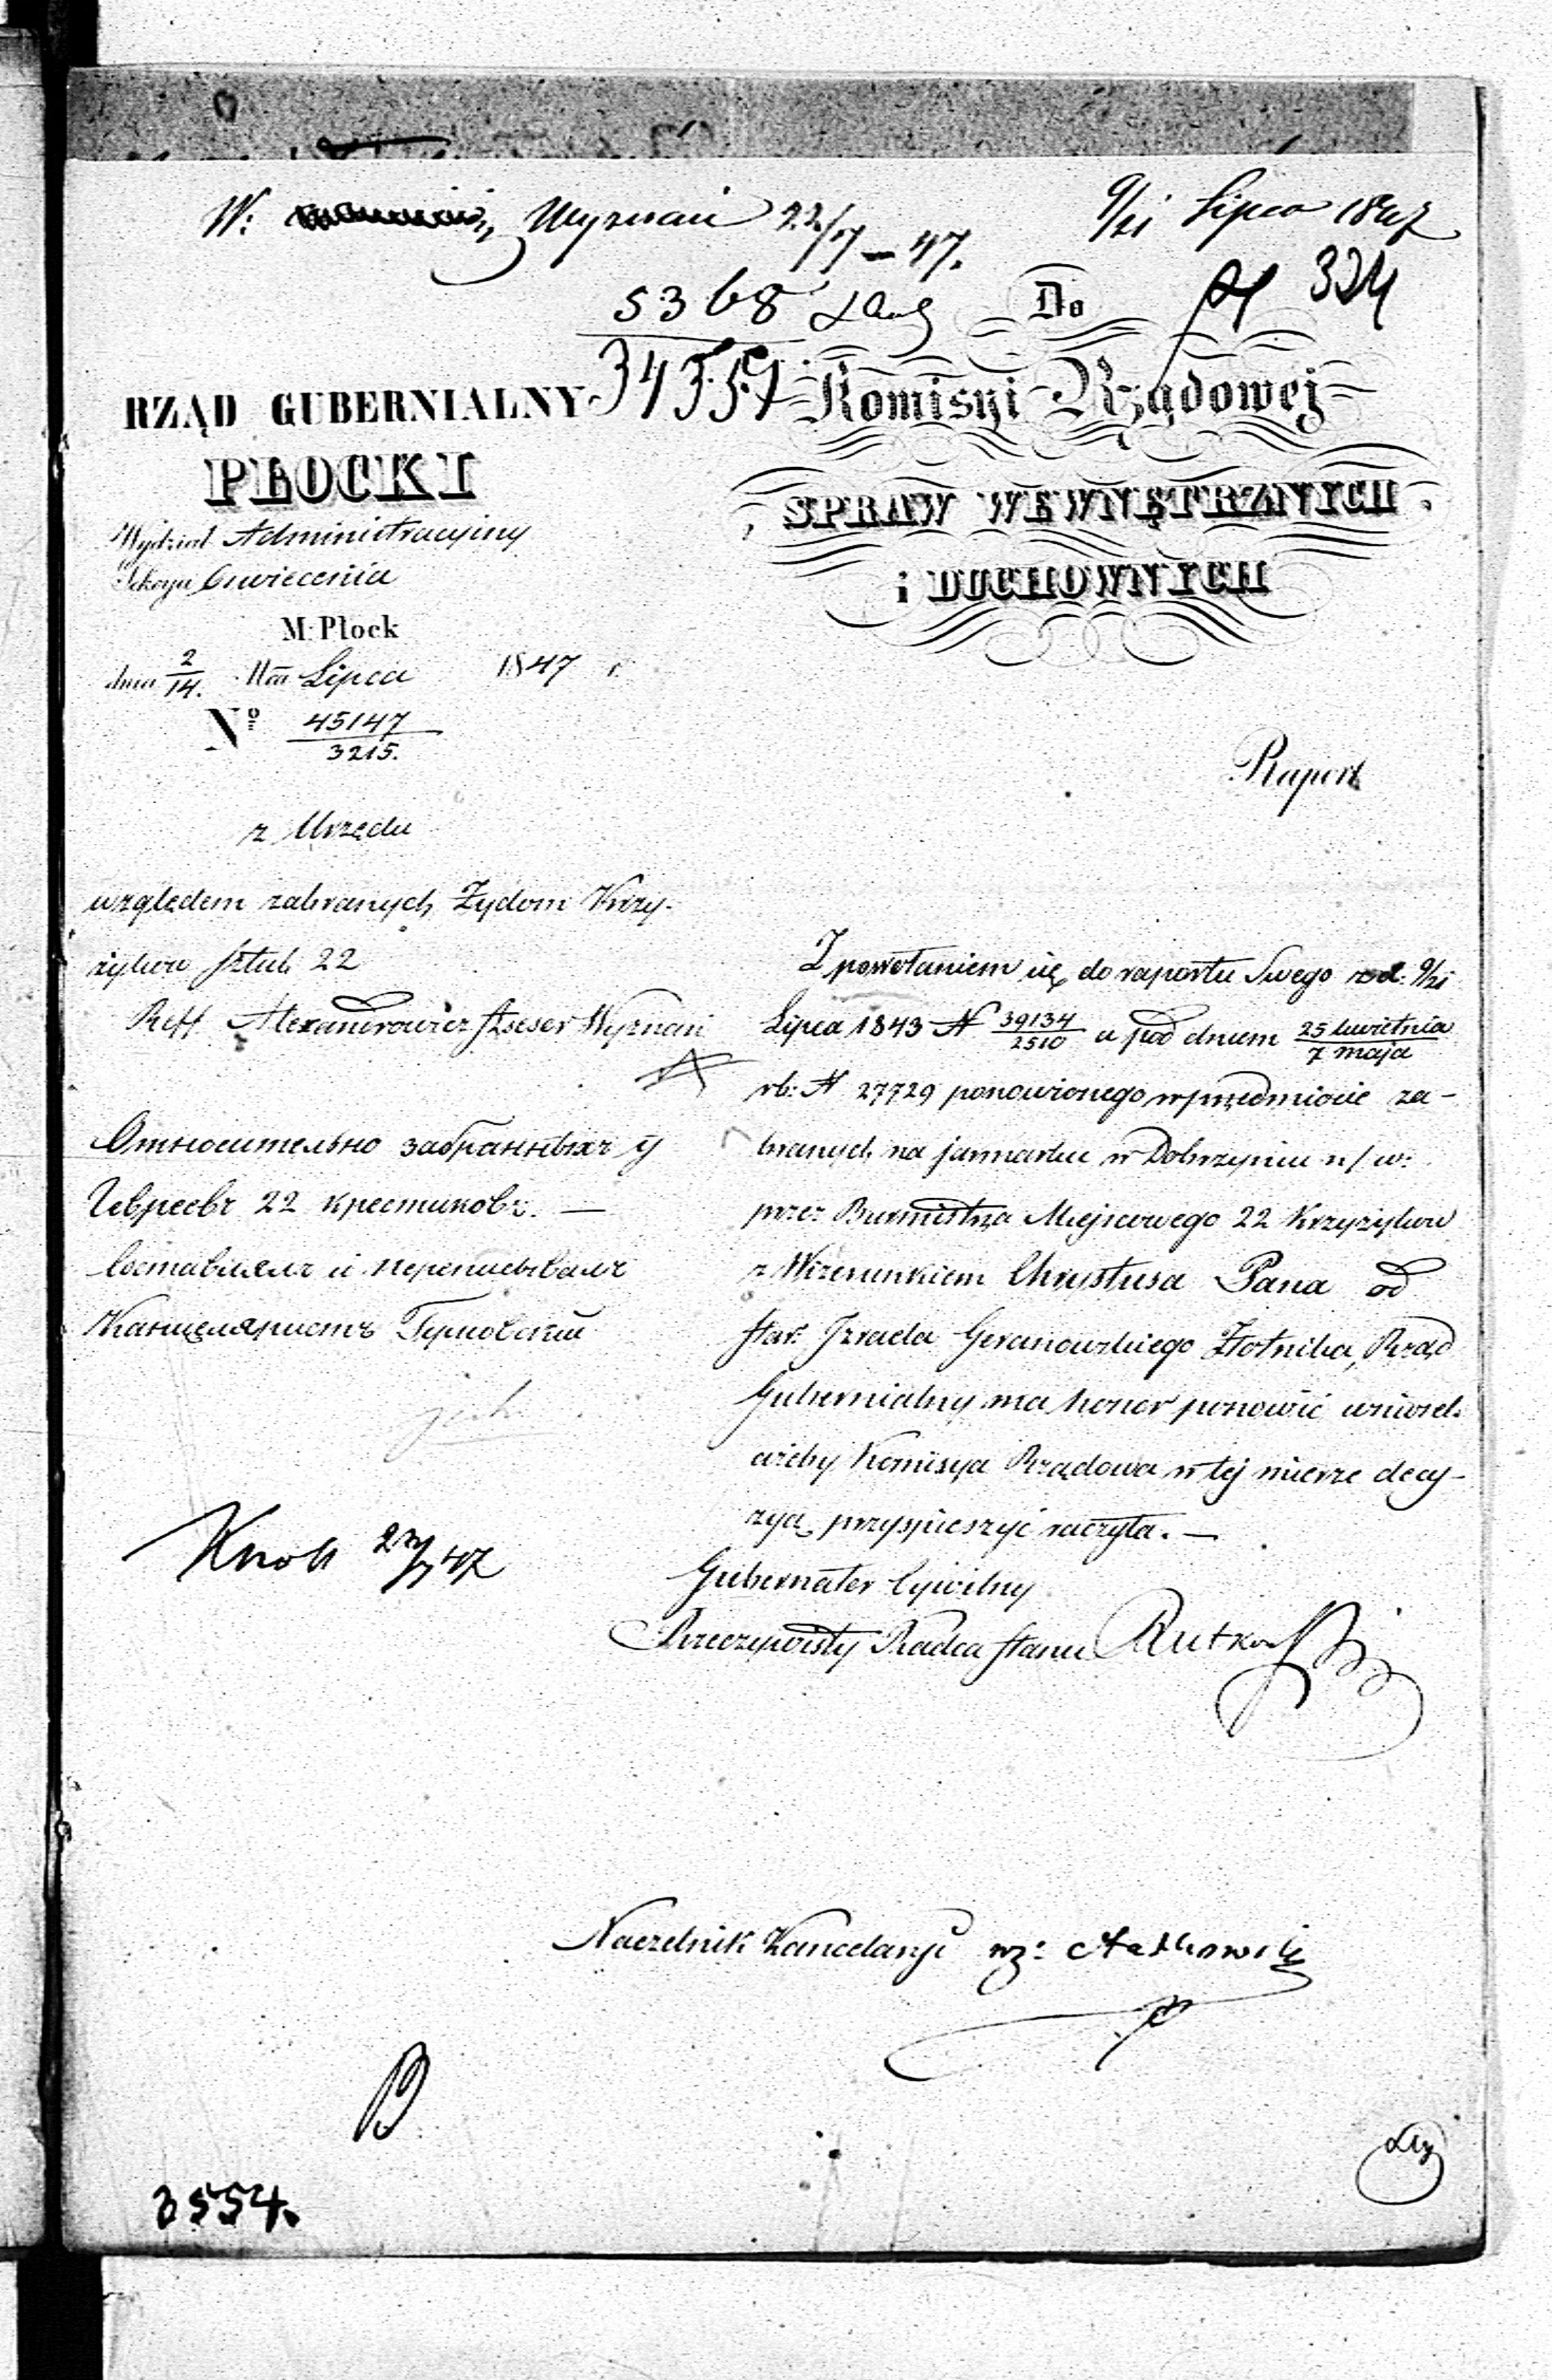 W: Wyznań 22/7 – 47.
9/21 Lipca 1847
5368
34359
324
Do
Komisyi Rządowej
SPRAW WEWNĘTRZNYCH
i DUCHOWNYCH
RZĄD GUBERNIALNY
PŁOCKI
Wydział Administracyjny
Sekcya Oświecenia
M. Płock
dnia 2/14. Mca Lipca 1847 r.
No 45147/3215.
Raport
z Urzędu
względem zabranych Żydom Krzy-
żyków sztuk 22
Reff. Alexandrowicz Assesor Wyznań
Относительно забранныхъ у
Евреевъ 22 крестиковъ. —
Составлялъ и переписывалъ
Канцеляристъ
Knoll 27/7 47
Z powołaniem się do raportu Swego z d: 9/21
Lipca 1843 N 39134/2510 a pod dniem 25 kwietnia/7 maja
rb: N 27729 ponowionego w przedmiocie za-
branych na jarmarku w Dobrzyniu n/w:
przez Burmistrza Miejscowego 22 Krzyżyków
z Wizerunkiem Chrystusa Pana od
star: Izraela Geranowskiego Złotnika, Rząd
Gubernialny ma honor ponowić wniosek
ażeby Komisya Rządowa w tej mierze decy-
zyą przyspieszyć raczyła. —
Gubernator Cywilny
Rzeczywisty Radca Stanu Rutkowski
Naczelnik Kancelaryi wz:
3554.